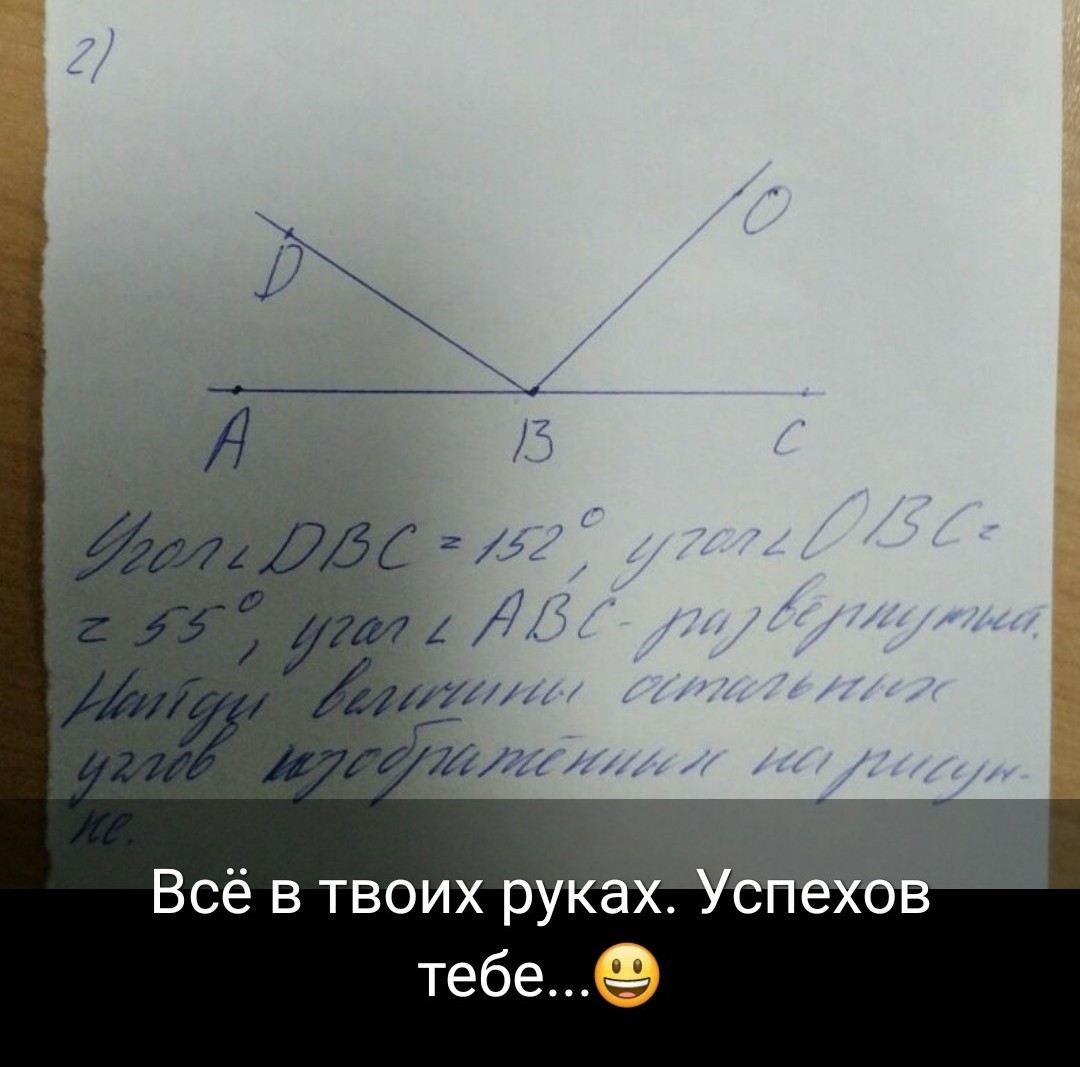 2)
D
O
A B C
Угол ∠DBC = 152°, угол ∠OBC =
= 55°, угол ∠ABC - развёрнутый.
Найди величины остальных
углов изображённых на рисун-
ке.
Всё в твоих руках. Успехов
тебе...😃